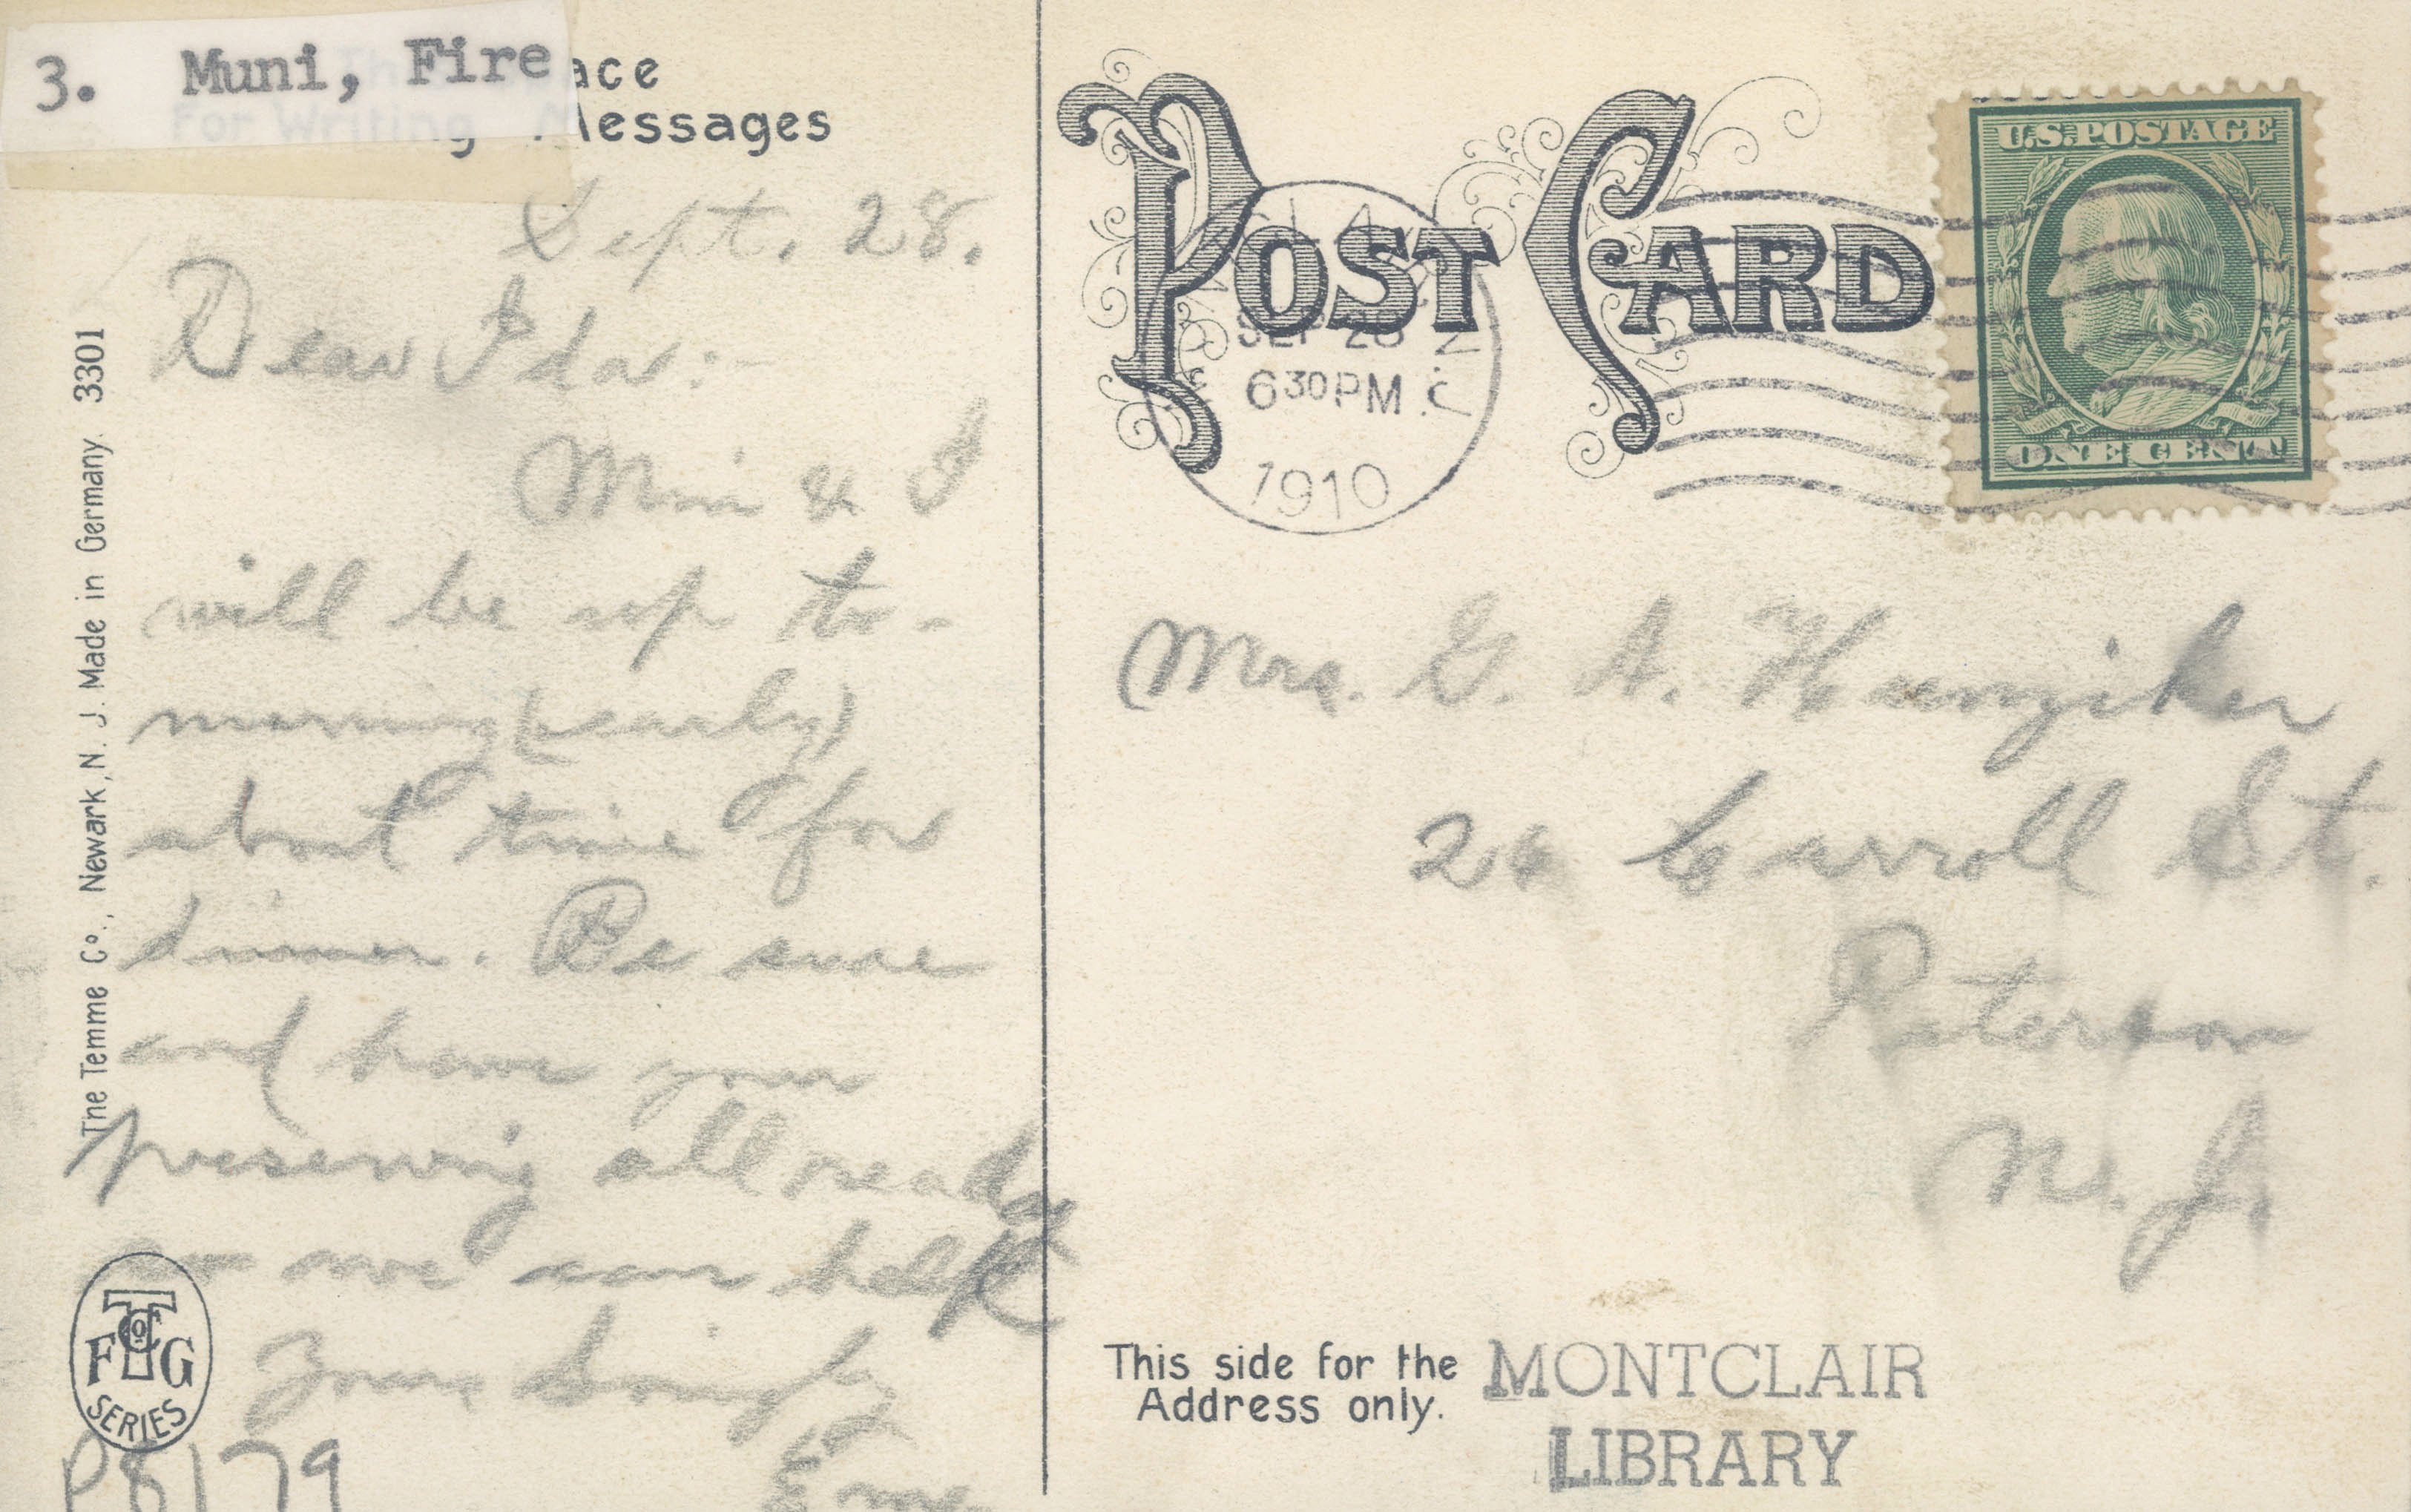 3. Muni, Fire
ace
For Writing Messages
Sept. 28.
Dear Ida:-
Min & I
will be up to-
morning (early)
about time for
dinner. Be sure
and have your
preserving all ready
so we can help
Yours
Em
P8179
The Temme Co., Newark, N. J. Made in Germany. 3301
T Co
F G
SERIES
POST CARD
MONTCLAIR N.J.
SEP 28
630PM
1910
U.S. POSTAGE
ONE CENT
Mrs. G. A. Hunziker
26 Carroll St.
Paterson
N. J.
This side for the
Address only.
MONTCLAIR
LIBRARY